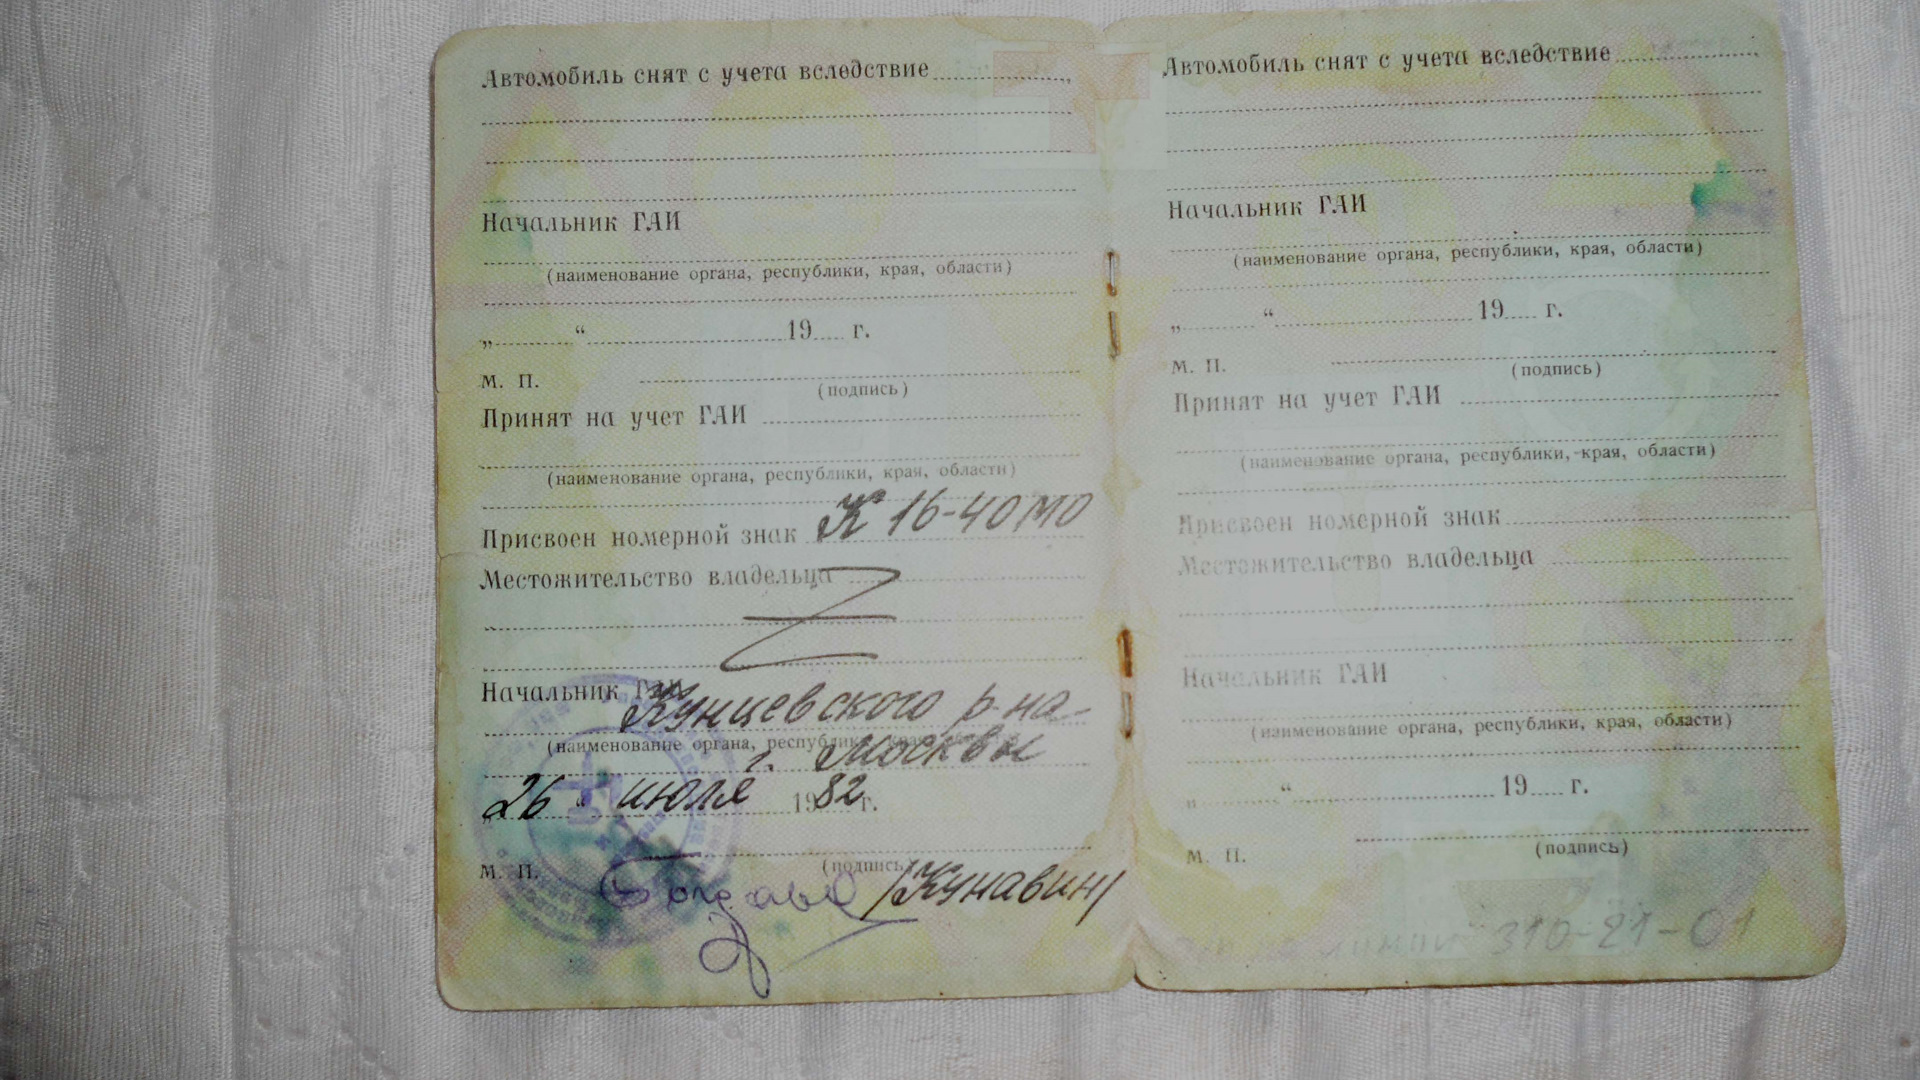 Автомобиль снят с учета вследствие
Начальник ГАИ
(наименование органа, республики, края, области)
„ “ 19 г.
М. П.
(подпись)
Принят на учет ГАИ
(наименование органа, республики, края, области)
Присвоен номерной знак К 16-40 МО
Местожительство владельца
Начальник ГАИ Кунцевского р-на
(наименование органа, республики, края, области)
г. Москвы
„26“ июля 1982 г.
(подпись)
М. П. /Кунавин/
Автомобиль снят с учета вследствие
Начальник ГАИ
(наименование органа, республики, края, области)
„ “ 19 г.
М. П.
(подпись)
Принят на учет ГАИ
(наименование органа, республики, края, области)
Присвоен номерной знак
Местожительство владельца
Начальник ГАИ
(наименование органа, республики, края, области)
„ “ 19 г.
М. П.
(подпись)
310-21-01